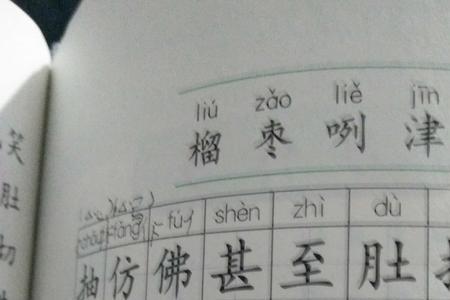 liú zǎo liě jīn
榴 枣 咧 津
fú shèn zhì dù
抽 仿 佛 甚 至 肚
笑
肚
切